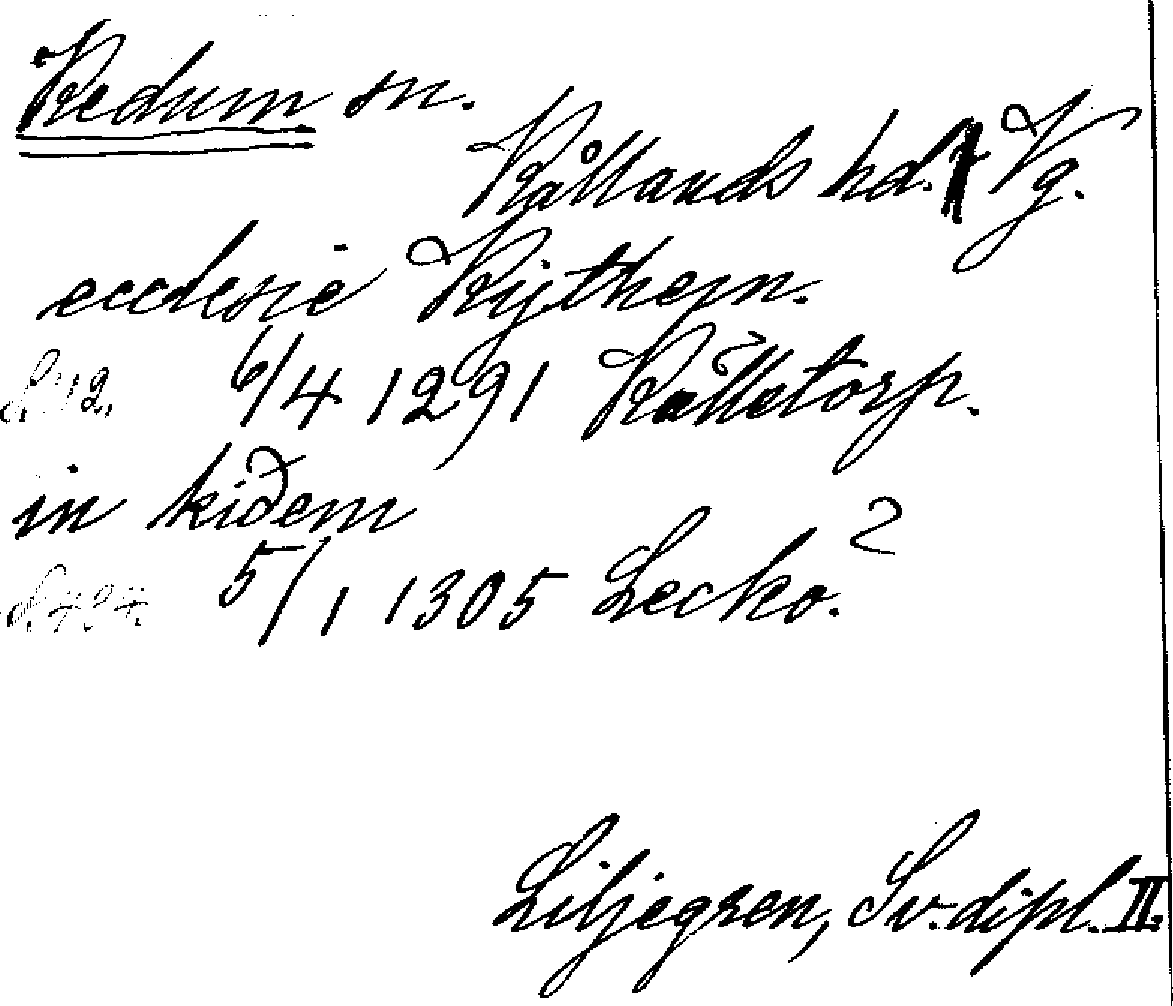 Kedum sn.
Kållands hd. Vg.
ecclesie Kijthem.
6/4 1291 Källetorp.
in kiðem
5/1 1305 Lecko. 2
Liljegren, Sv. dipl. II.